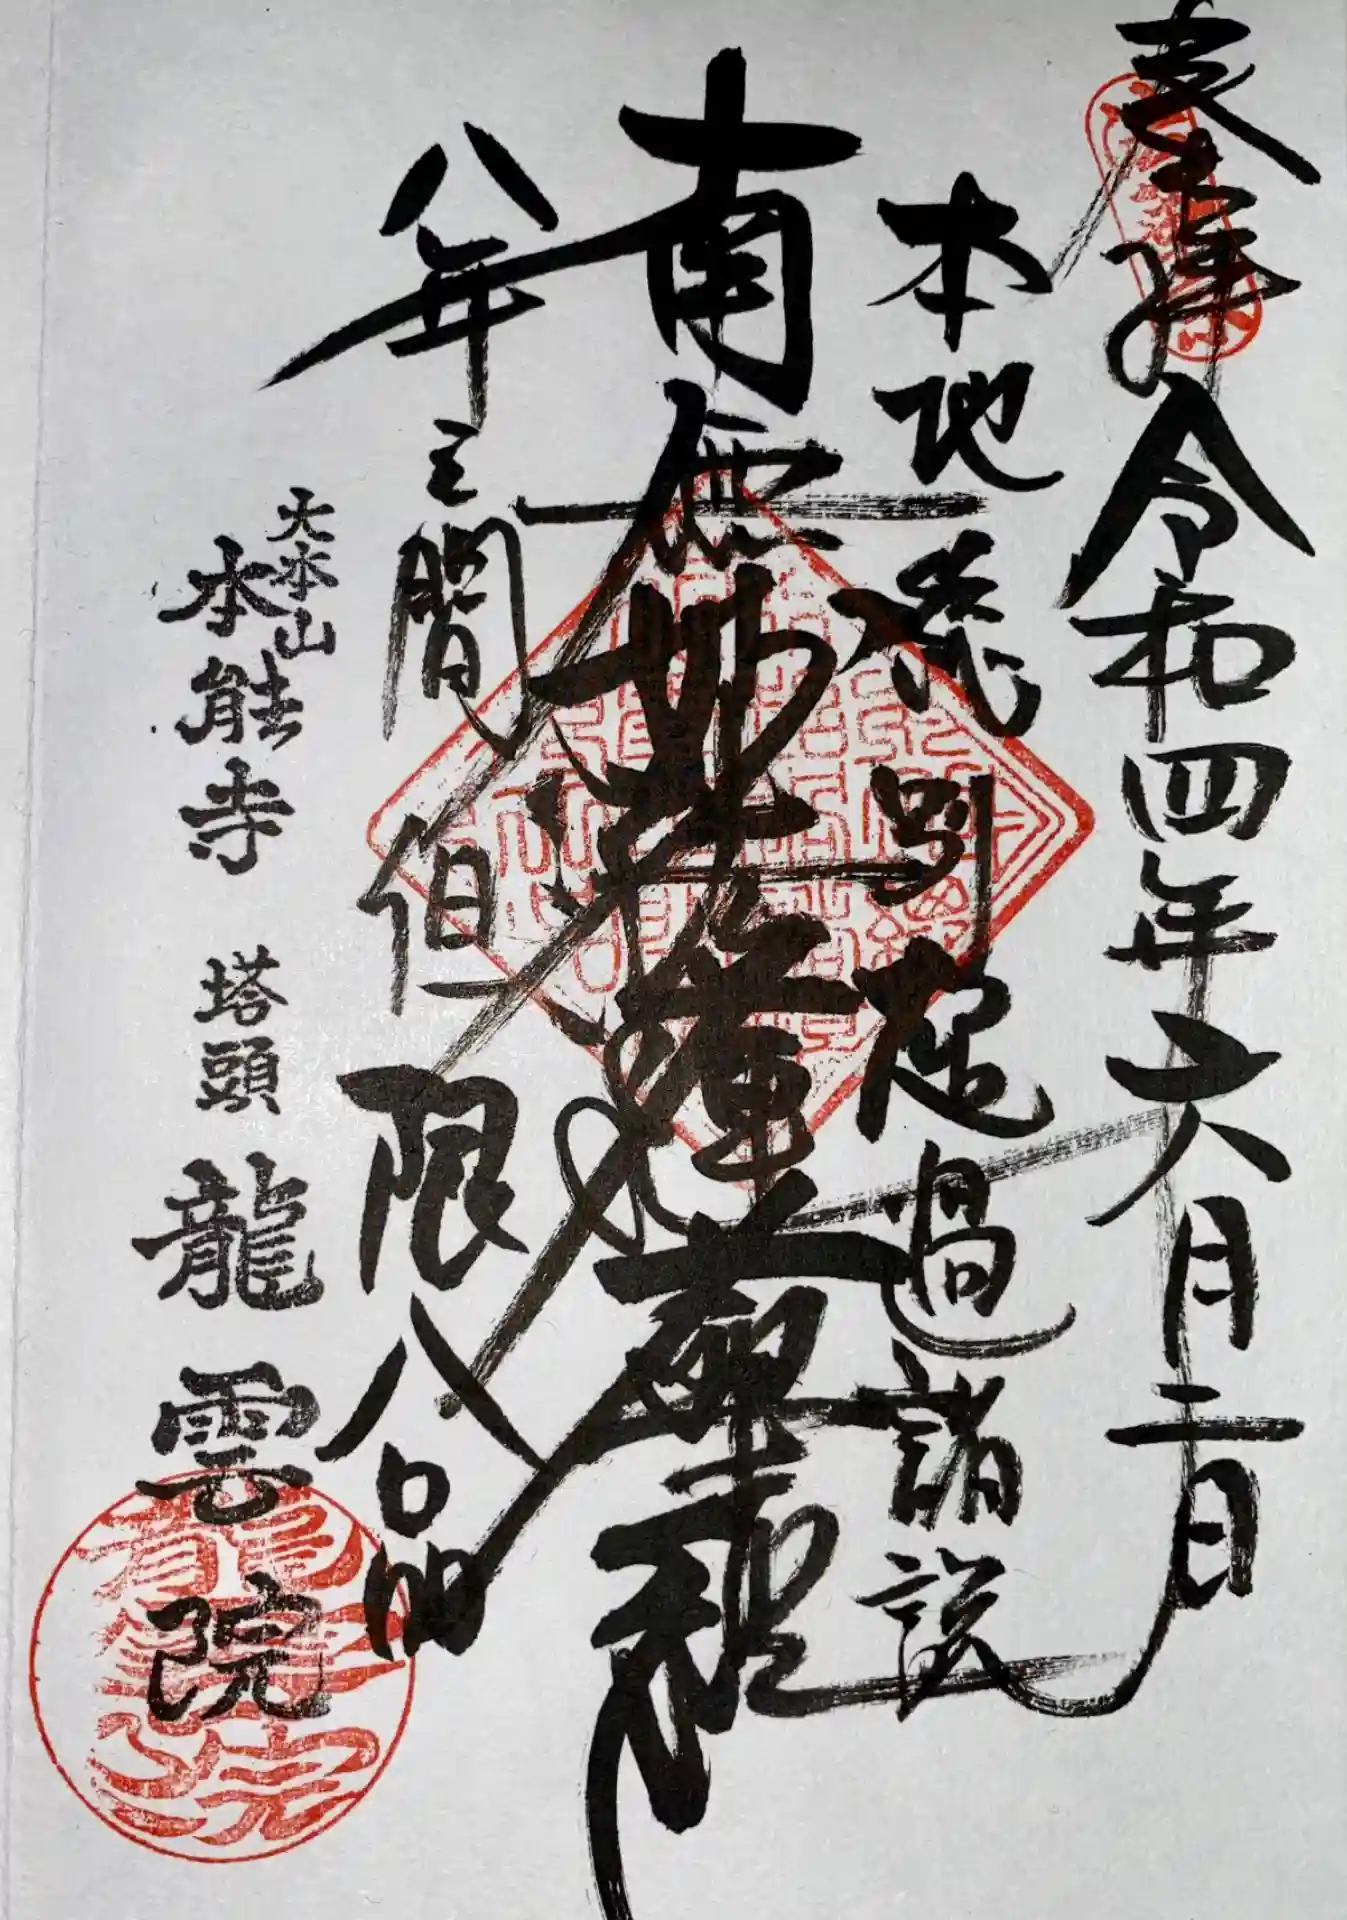 奉拝 令和四年六月二日
本地総別超過諸説
南無妙法蓮華経
八年之間但限八品
大本山
本能寺 塔頭 龍雲院